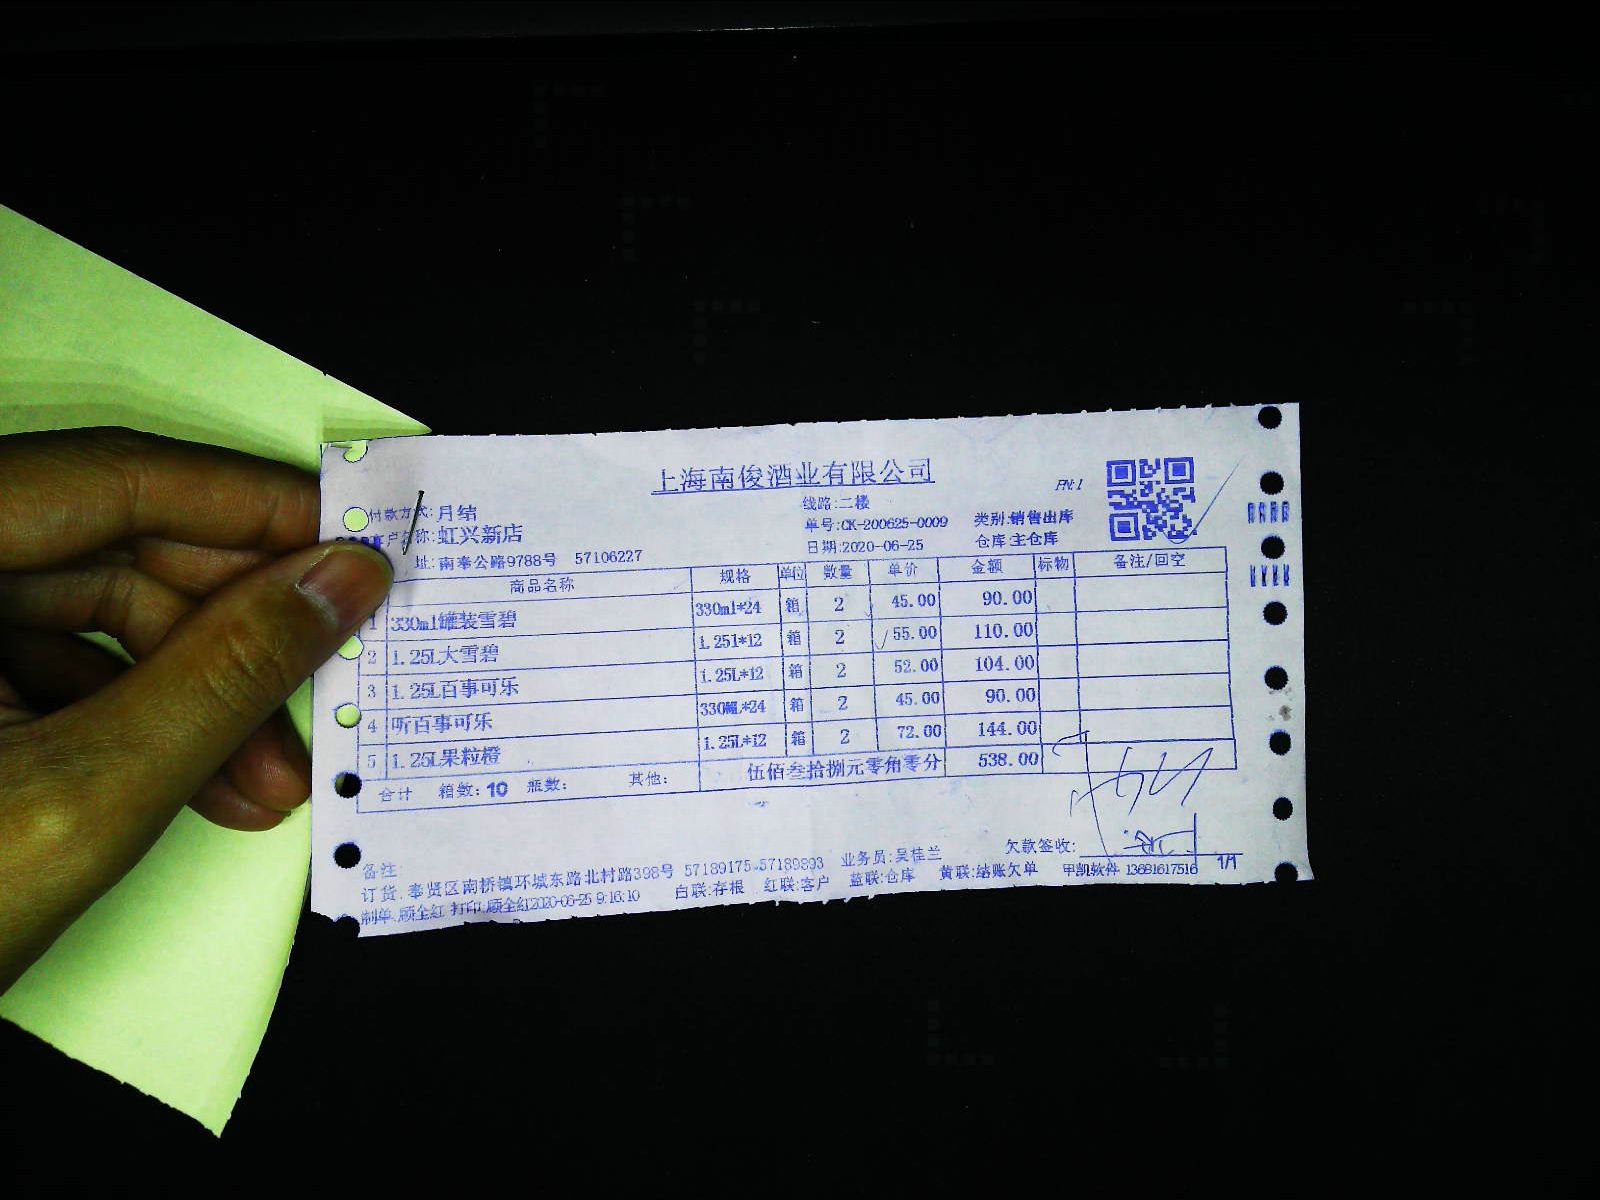 上海南俊酒业有限公司
PN:1
付款方式:月结 线路:二楼
客户名称:虹兴新店 单号:CK-200625-0009 类别:销售出库
址:南奉公路9788号 57106227 日期:2020-06-25 仓库:主仓库
商品名称 规格 单位 数量 单价 金额 标物 备注/回空
1 330ml罐装雪碧 330ml*24 箱 2 45.00 90.00
2 1.25L大雪碧 1.25l*12 箱 2 55.00 110.00
3 1.25L百事可乐 1.25L*12 箱 2 52.00 104.00
4 听百事可乐 330ML*24 箱 2 45.00 90.00
5 1.25L果粒橙 1.25L*12 箱 2 72.00 144.00
合计 箱数:10 瓶数: 其他: 伍佰叁拾捌元零角零分 538.00
备注:
订货.奉贤区南桥镇环城东路北村路398号 57189175.57189893 业务员:吴桂兰 欠款签收:
制单.顾全红 打印:顾全红2020-06-25 9:16:10 白联:存根 红联:客户 蓝联:仓库 黄联:结账欠单 甲凯软件 13681617516 1/1